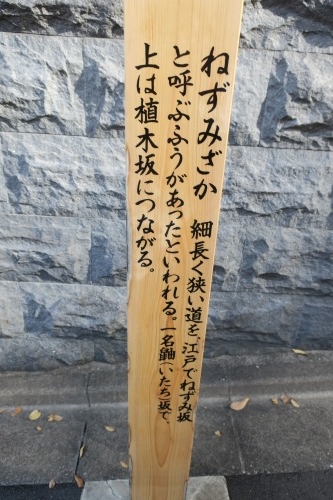 ねずみざか 細長く狭い道を、江戸でねずみ坂
と呼ぶふうがあったといわれる。一名鼬(いたち)坂で、
上は植木坂につながる。